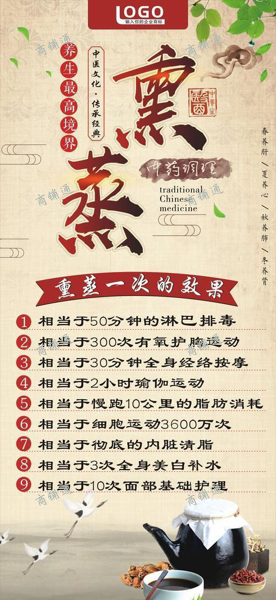 LOGO
输入你的企业商标
养生最高境界
中医文化·传承经典
熏蒸
中药调理
traditional
Chinese
medicine
春养肝/夏养心/秋养肺/冬养肾
熏蒸一次的效果
1 相当于50分钟的淋巴排毒
2 相当于300次有氧护肺运动
3 相当于30分钟全身经络按摩
4 相当于2小时瑜伽运动
5 相当于慢跑10公里的脂肪消耗
6 相当于细胞运动3600万次
7 相当于彻底的内脏清脂
8 相当于3次全身美白补水
9 相当于10次面部基础护理
商铺通
商铺通
商铺通
商铺通
商铺通
商铺通